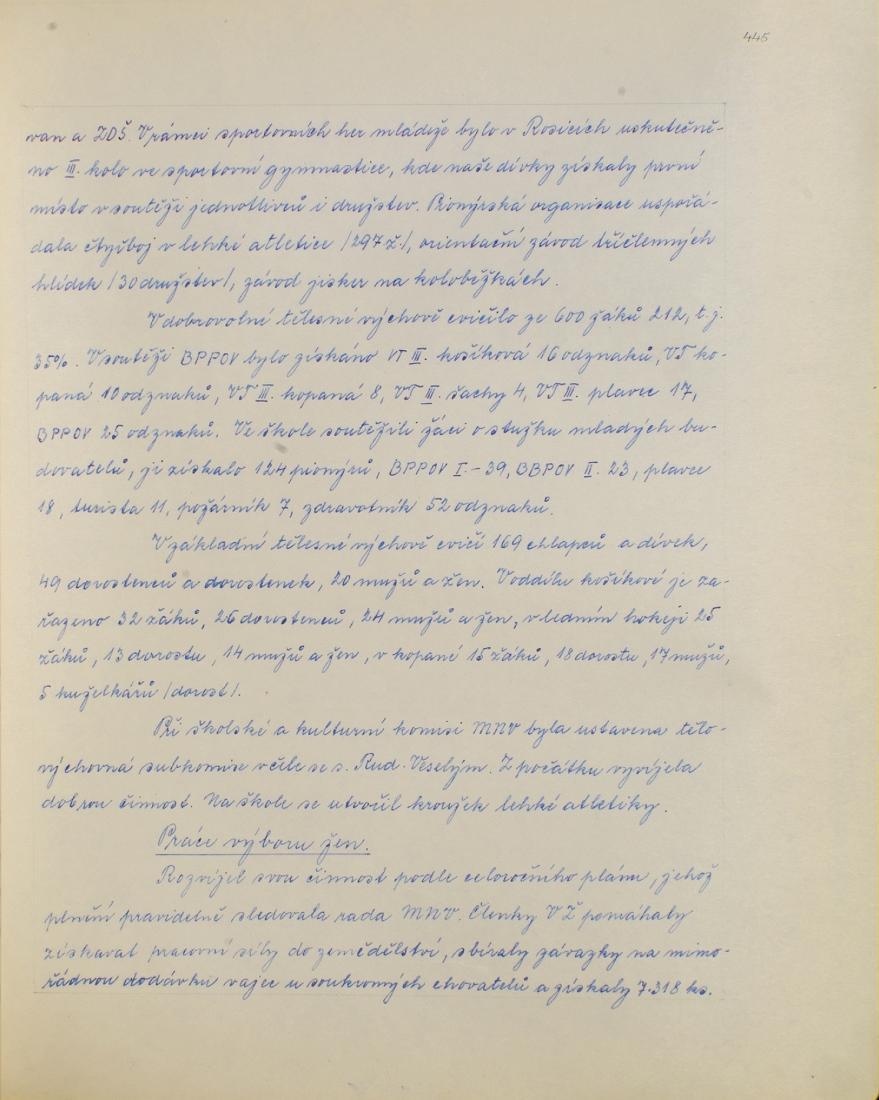 445
van a ZDŠ. V rámci sportovních her mládeže bylo v Rosicích uskutečně-
no III. kolo ve sportovní gymnastice, kde naše dívky získaly první
místo v soutěži jednotlivců i družstev. Pionýrská organisace uspořá-
dala čtyřboj v lehké atletice /297 ž./, orientační závod tříčlenných
hlídek /30 družstev/, závod jisker na koloběžkách.
V dobrovolné tělesné výchově cvičilo ze 600 žáků 212, t.j.
35%. V soutěži BPPOV bylo získáno VT III. košíková 16 odznaků, VT ko-
paná 10 odznaků, VT III. kopaná 8, VT III. šachy 4, VT III. plavec 17,
BPPOV 25 odznaků. Ve škole soutěžili žáci o stužku mladých bu-
dovatelů, ji získalo 124 pionýrů, BPPOV I. - 39, BBPOV II. 23, plavec
18, turista 11, požárník 7, zdravotník 52 odznaků.
V základní tělesné výchově cvičí 169 chlapců a dívek,
49 dorostenců a dorostenek, 20 mužů a žen. V oddílu košíkové je za-
řazeno 32 žáků, 26 dorostenců, 24 mužů a žen, v ledním hokeji 25
žáků, 13 dorostu, 14 mužů a žen, v kopané 15 žáků, 18 dorostu, 17 mužů,
5 kuželkářů /dorost/.
Při školské a kulturní komisi MNV byla ustavena tělo-
výchovná subkomise v čele se s. Rud. Veselým. Z počátku vyvíjela
dobrou činnost. Na škole se utvořil kroužek lehké atletiky.
Práce výboru žen.
Rozvíjel svou činnost podle celoročního plánu, jehož
plnění pravidelně sledovala rada MNV. Členky VŽ pomáhaly
získávat pracovní síly do zemědělství, sbíraly závazky na mimo-
řádnou dodávku vajec u soukromých chovatelů a získaly 7.318 ks.